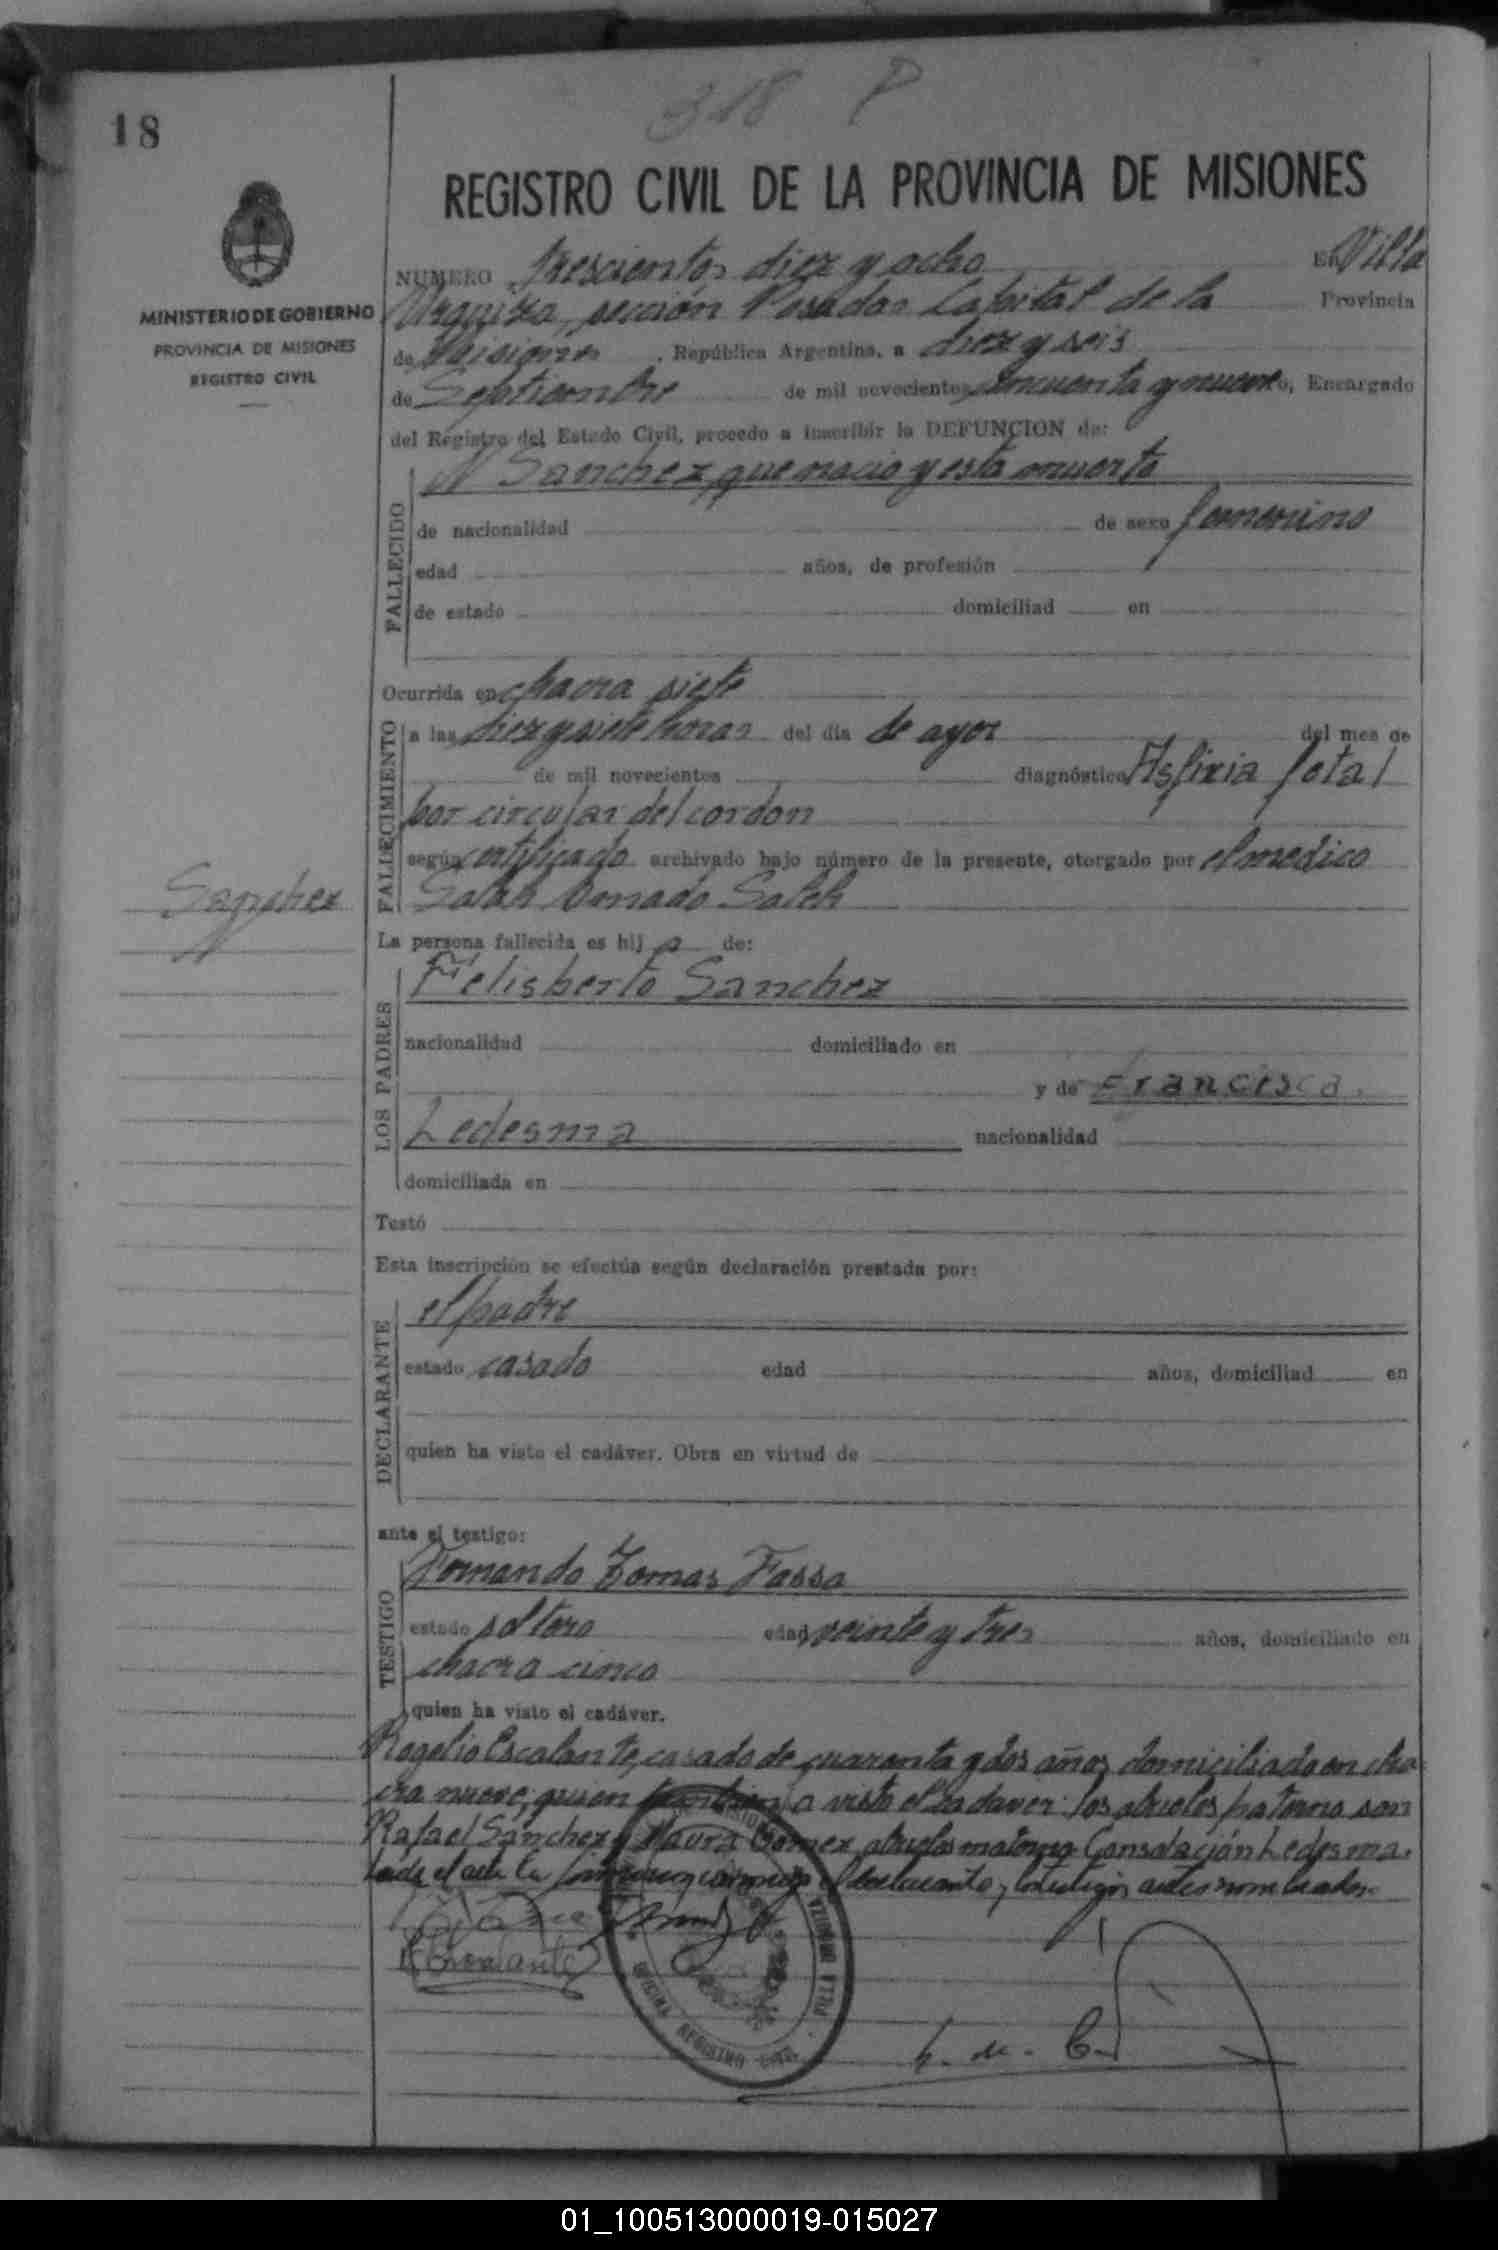 318 P
18
REGISTRO CIVIL DE LA PROVINCIA DE MISIONES
MINISTERIO DE GOBIERNO
PROVINCIA DE MISIONES
REGISTRO CIVIL
NUMERO trescientos diez y ocho En Villa
Urquiza, sección Posadas Capital de la Provincia
de Misiones, República Argentina, a diez y seis
de Septiembre de mil novecientos cincuenta y nueve, Encargado
del Registro del Estado Civil, procedo a inscribir la DEFUNCION de:
N Sanchez, que nacio y esta muerto
FALLECIDO
de nacionalidad de sexo femenino
edad años, de profesión
de estado domiciliad en
Ocurrida en chacra siete
FALLECIMIENTO
a las diez y siete horas del día de ayer del mes de
de mil novecientos diagnóstico Asfixia fetal
por circular del cordon
según certificado archivado bajo número de la presente, otorgado por el medico
Salah Saleh
Sanchez
La persona fallecida es hij a de:
LOS PADRES
Felisberto Sanchez
nacionalidad domiciliado en
y de Francisca
Ledesma nacionalidad
domiciliada en
Testó
Esta inscripción se efectúa según declaración prestada por:
DECLARANTE
el padre
estado casado edad años, domiciliad en
quien ha visto el cadáver. Obra en virtud de
ante el testigo:
TESTIGO
Tomas Fassa
estado soltero edad veinte y tres años, domiciliado en
chacra cinco
quien ha visto el cadáver.
Rogelio Escalante, casado de cuarenta y dos años domiciliado en cha
cra nueve, quien tambien a visto el cadaver: los abuelos paterno son
Rafael Sánchez y Maura Gomez abuelos materno Consolación Ledesma.
Leida el acta la firmaron conmigo el declarante y testigos antes nombrados.
Escalante
OFICINA REGISTRO CIVIL
VILLA URQUIZA
01_100513000019-015027